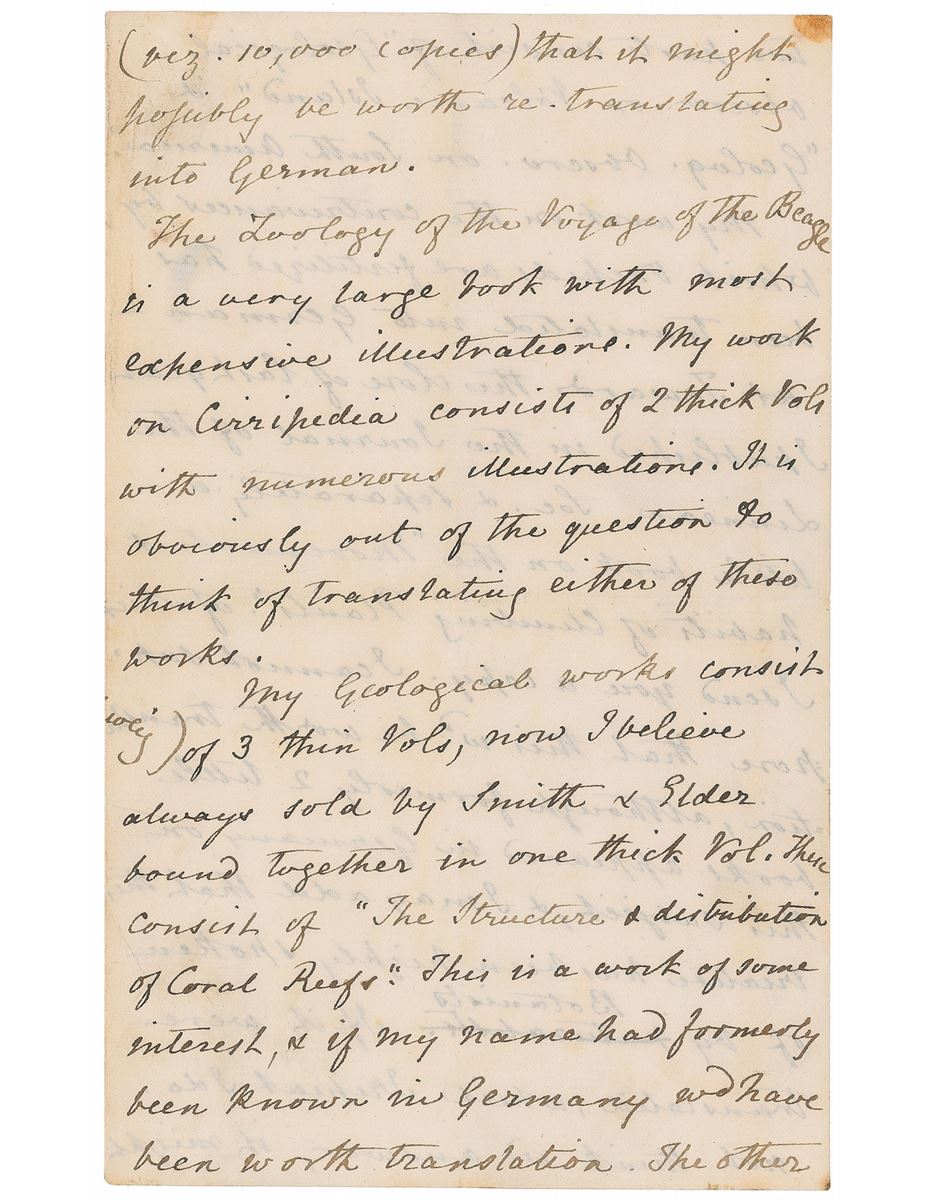 (viz. 10,000 copies) that it might
possibly be worth re-translating
into German.
The Zoology of the Voyage of the Beagle
is a very large book with most
expensive illustrations. My work
on Cirripedia consists of 2 thick Vols
with numerous illustrations. It is
obviously out of the question to
think of translating either of these
works.
My Geological works consist
of 3 thin Vols, now I believe
always sold by Smith & Elder
bound together in one thick Vol. These
consist of "The Structure & distribution
of Coral Reefs". This is a work of some
interest, & if my name had formerly
been known in Germany wd have
been worth translation. The other